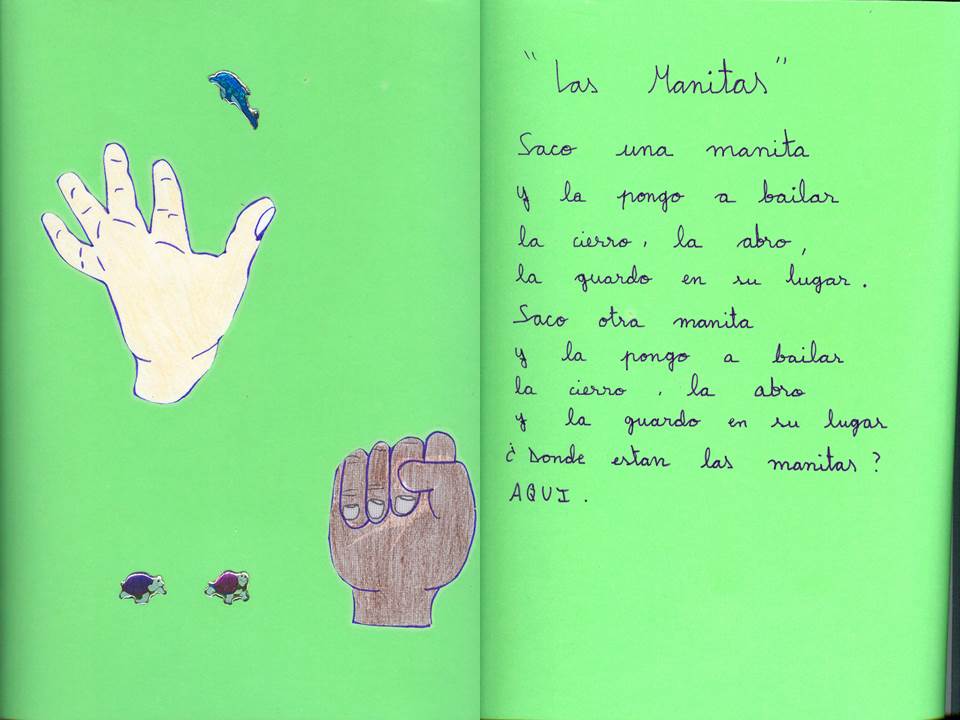 "Las Manitas"
Saco una manita
y la pongo a bailar
la cierro, la abro,
la guardo en su lugar.
Saco otra manita
y la pongo a bailar
la cierro, la abro
y la guardo en su lugar
¿Donde estan las manitas?
AQUI.